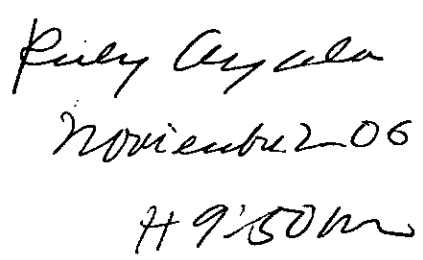 Ruby Ayala
Noviembre 2-06
H 9:50 am